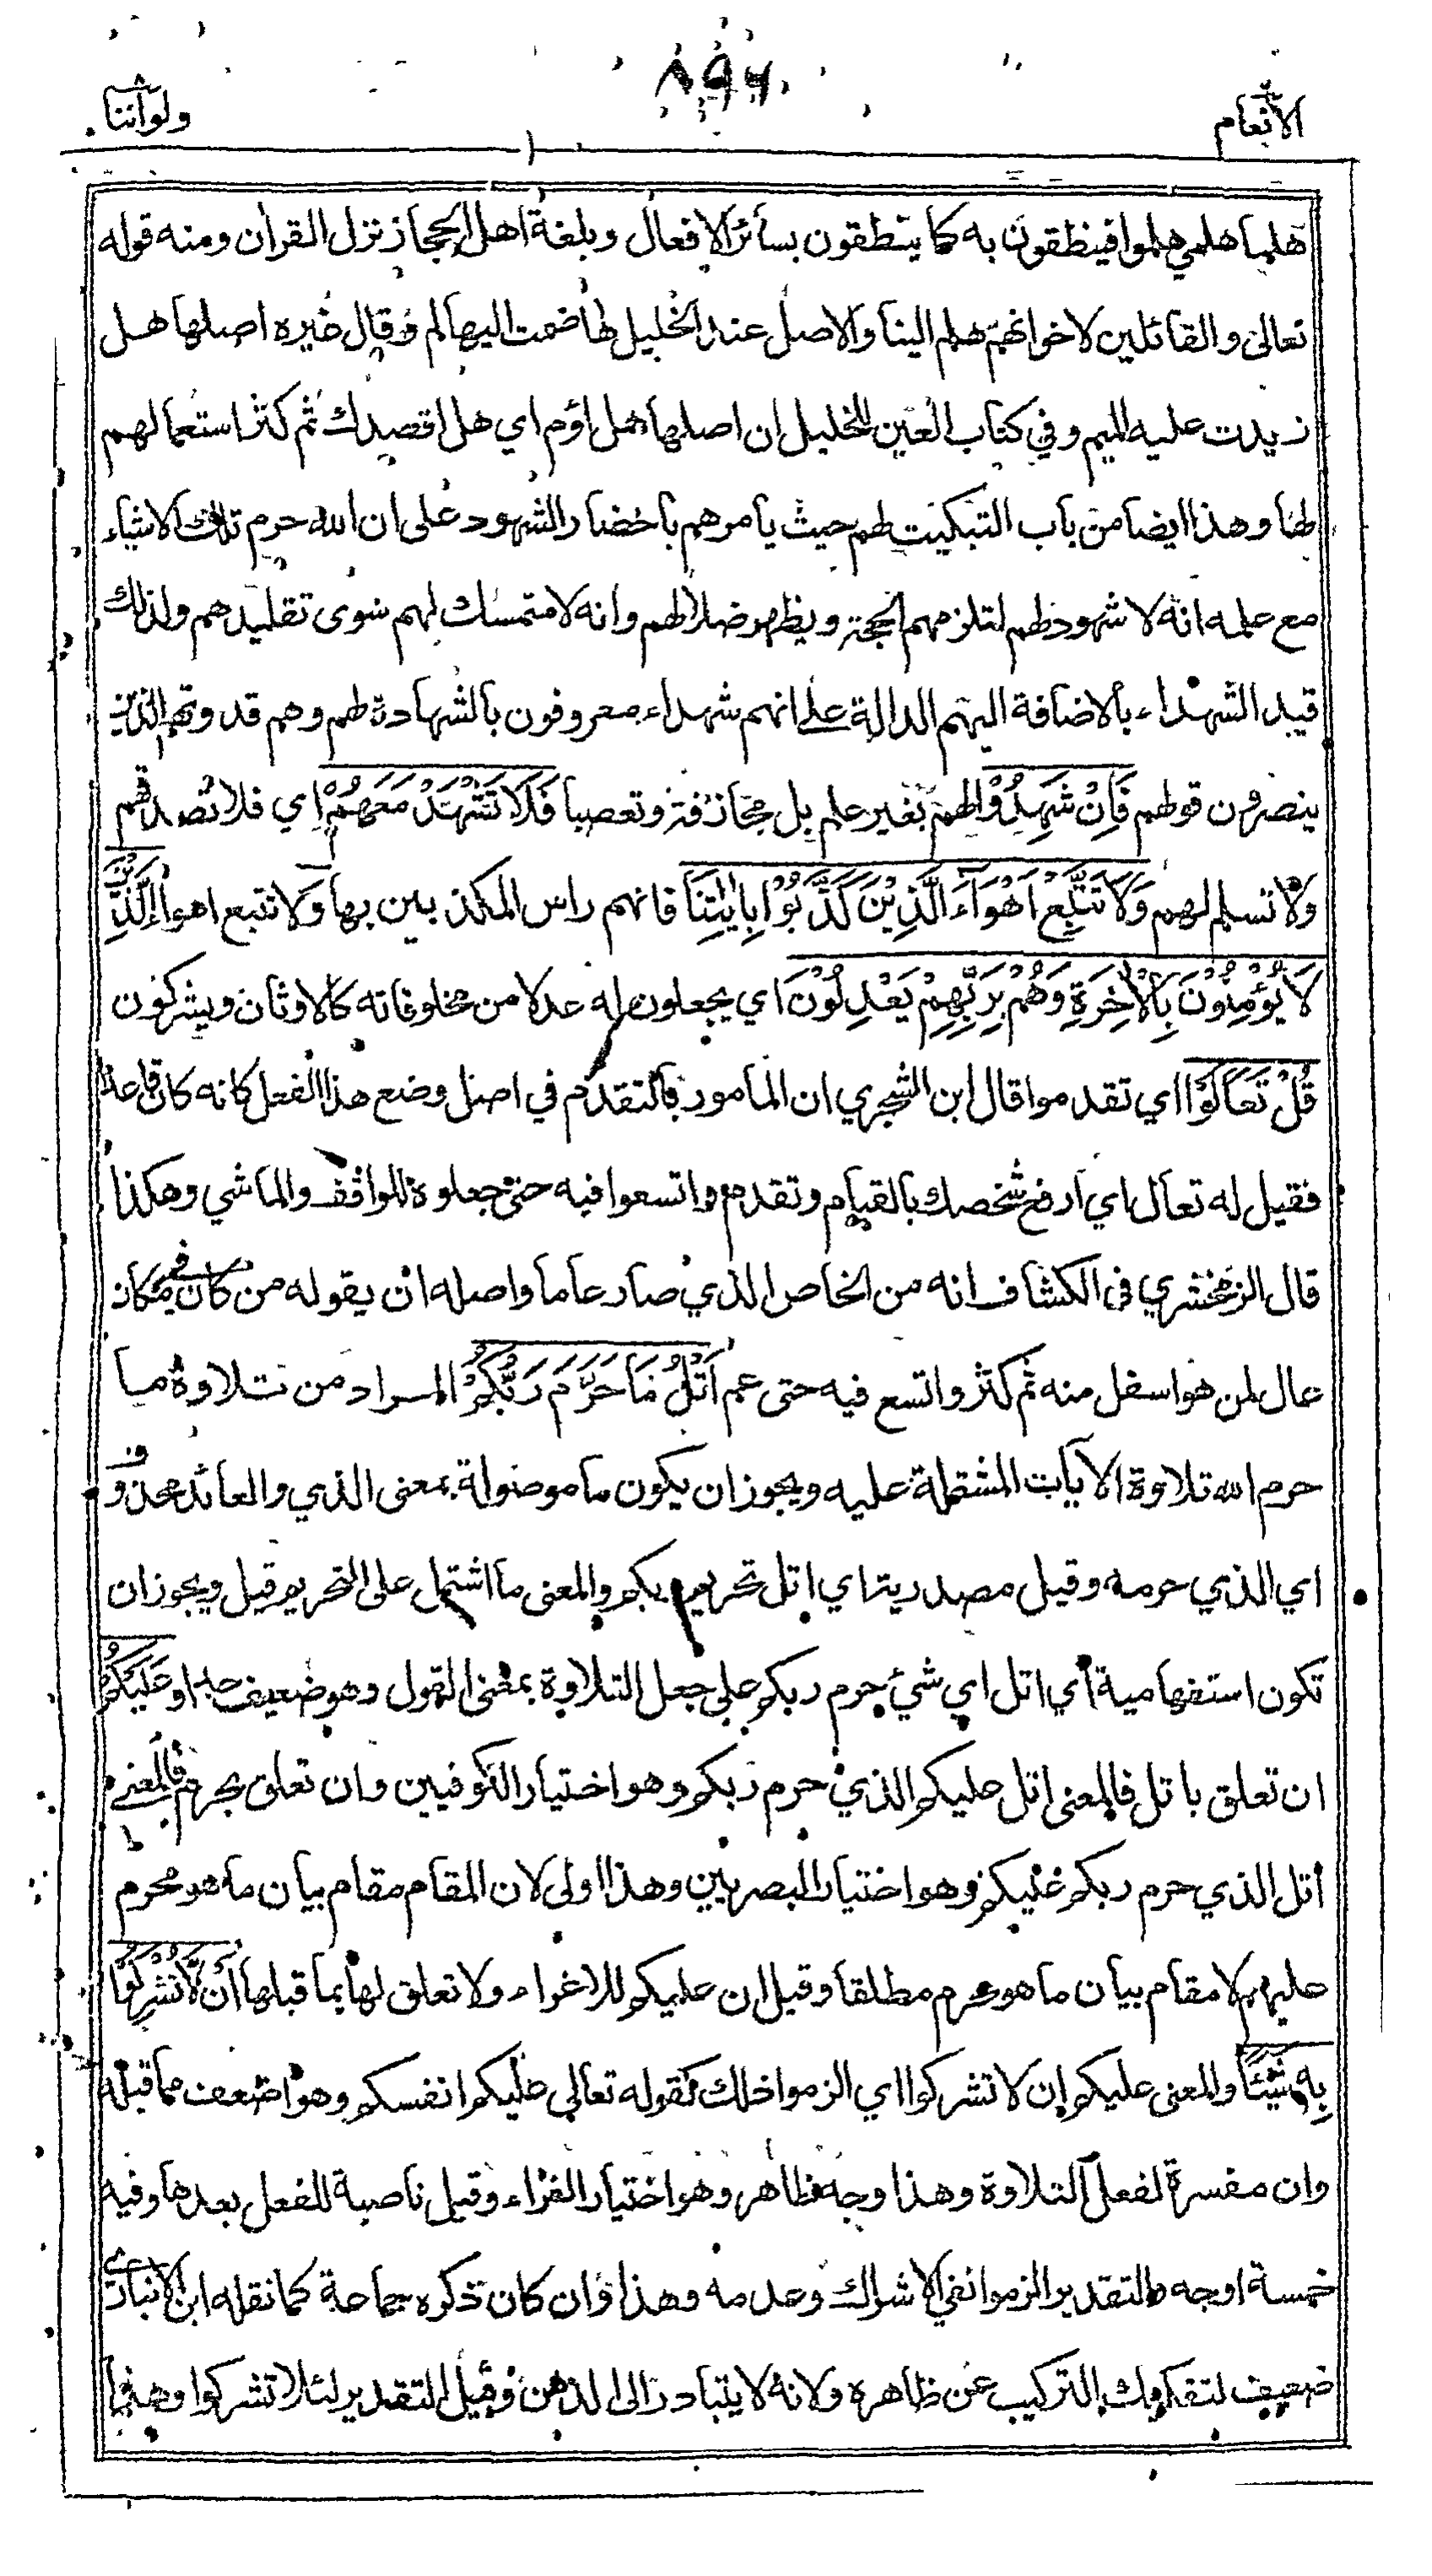 الانعام
٨٩٦
ولواننا
هلما هلمي هلموا فينطقون به كما ينطقون بسائر الافعال وبلغة اهل الحجاز نزل القران ومنه قوله
تعالى والقائلين لاخوانهم هلم الينا والاصل عند الخليل ها ضمت اليها لم وقال غيره اصلها هل
زيدت عليه الميم وفي كتاب العين للخليل ان اصلها هل اؤم اي هل اقصدك ثم كثر استعمالهم
لها وهذا ايضا من باب التبكيت لهم حيث يامرهم باحضار الشهود على ان الله حرم تلك الاشياء
مع علمه انه لا شهود لهم لتلزمهم الحجة ويظهر ضلالهم وانه لا متمسك لهم سوى تقليدهم ولذلك
قيد الشهداء بالاضافة اليهم الدالة على انهم شهداء معروفون بالشهادة لهم وهم قدوتهم الذين
ينصرون قولهم فَاِنْ شَهِدُوْا لهم بغير علم بل مجازفة وتعصبا فَلَا تَشْهَدْ مَعَهُمْ اي فلا تصدقهم
ولا تسلم لهم وَلَا تَتَّبِعْ اَهْوَآءَ الَّذِيْنَ كَذَّبُوْا بِاٰيٰتِنَا فانهم راس المكذبين بها ولا تتبع اهواء الَّذِيْنَ
لَا يُؤْمِنُوْنَ بِالْاٰخِرَةِ وَهُمْ بِرَبِّهِمْ يَعْدِلُوْنَ اي يجعلون له عدلا من مخلوقاته كالاوثان ويشركون
قُلْ تَعَالَوْا اي تقدموا قال ابن الشجري ان المامور بالتقدم في اصل وضع هذا الفعل كانه كان قاعدا
فقيل له تعال اي ارفع شخصك بالقيام وتقدم واتسعوا فيه حتى جعلوه للواقف والماشي وهكذا
قال الزمخشري في الكشاف انه من الخاص الذي صار عاما واصله ان يقوله من كان في مكان
عال لمن هو اسفل منه ثم كثر واتسع فيه حتى عم اَتْلُ مَا حَرَّمَ رَبُّكُمْ المراد من تلاوة ما
حرم الله تلاوة الايات المشتملة عليه ويجوز ان يكون ما موصولة بمعنى الذي والعائد محذوف
اي الذي حرمه وقيل مصدرية اي اتل تحريم ربكم والمعنى ما اشتمل على التحريم قيل ويجوز ان
تكون استفهامية اي اتل اي شيء حرم ربكم على جعل التلاوة بمعنى القول وهو ضعيف جدا وعَلَيْكُمْ
ان تعلق باتل فالمعنى اتل عليكم الذي حرم ربكم وهو اختيار الكوفيين وان تعلق بحرم فالمعنى
اتل الذي حرم ربكم عليكم وهو اختيار البصريين وهذا اولى لان المقام مقام بيان ما هو محرم
عليهم لا مقام بيان ما هو محرم مطلقا وقيل ان عليكم للاغراء ولا تعلق لها بما قبلها اَنْ لَّا تُشْرِكُوْا
بِهٖ شَيْئًا والمعنى عليكم ان لا تشركوا اي الزموا ذلك كقوله تعالى عليكم انفسكم وهو اضعف مما قبله
وان مفسرة لفعل التلاوة وهذا وجه ظاهر وهو اختيار الفراء وقيل ناصبة للفعل بعدها وفيه
خمسة اوجه والتقدير الزموا نفي الاشراك وعدمه وهذا وان كان ذكره جماعة كما نقله ابن الانباري
ضعيف لتفكيك التركيب عن ظاهره ولانه لا يتبادر الى الذهن وقيل التقدير لئلا تشركوا وهذا